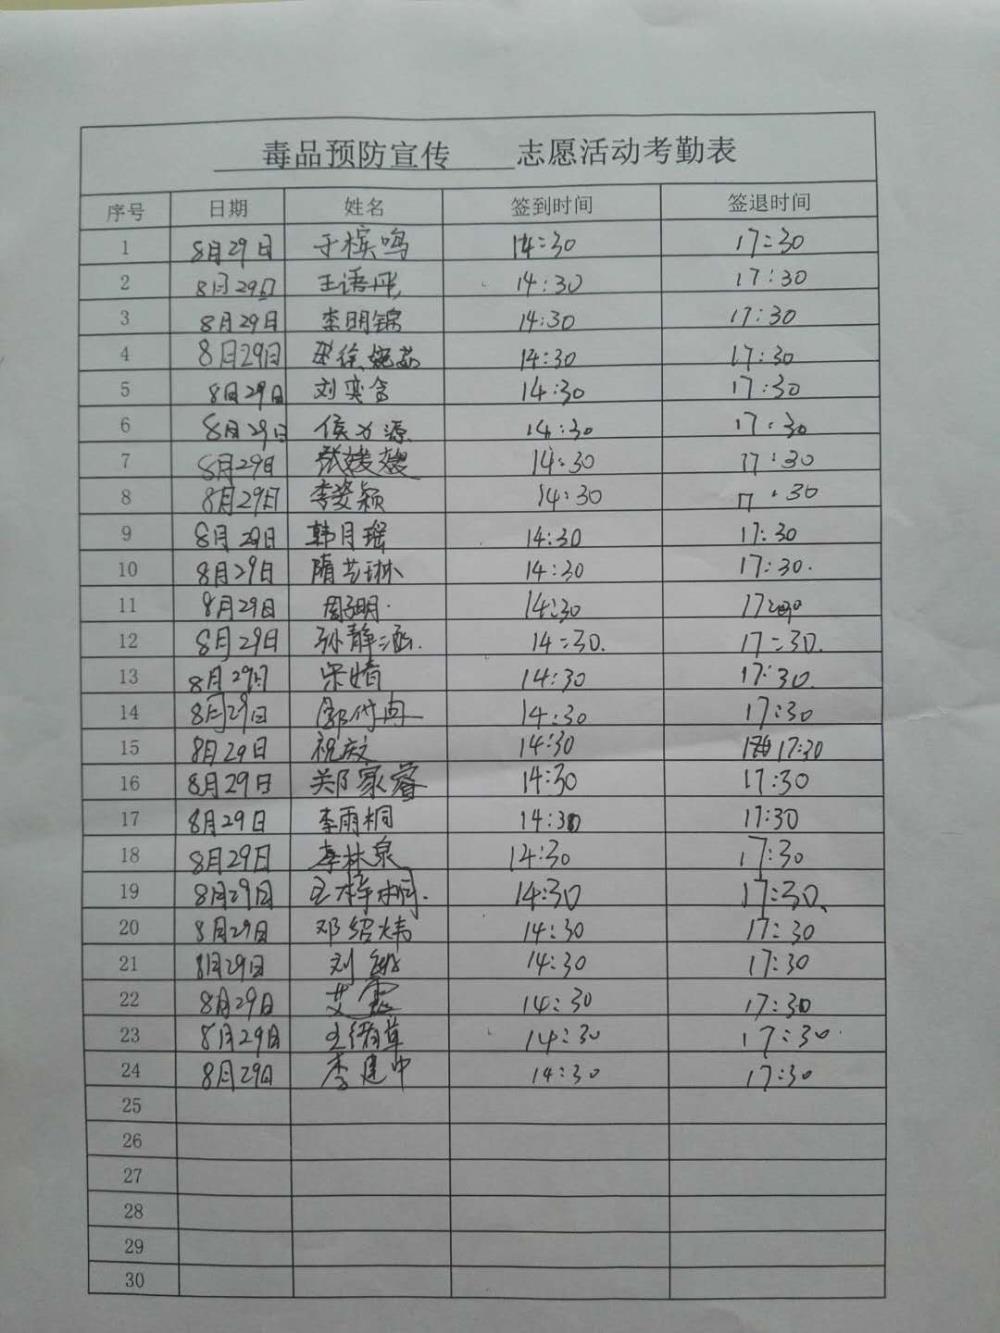 毒品预防宣传 志愿活动考勤表
序号 日期 姓名 签到时间 签退时间
1 8月29日 于槟鸣 14:30 17:30
2 8月29日 王语彤 14:30 17:30
3 8月29日 李明锦 14:30 17:30
4 8月29日 徐婉茹 14:30 17:30
5 8月29日 刘奕含 14:30 17:30
6 8月29日 侯力源 14:30 17:30
7 8月29日 张媛媛 14:30 17:30
8 8月29日 李姿颖 14:30 17:30
9 8月29日 韩月瑶 14:30 17:30
10 8月29日 隋艺琳 14:30 17:30.
11 8月29日 14:30 17:30
12 8月29日 孙静涵. 14:30. 17:30.
13 8月29日 宋婧 14:30 17:30.
14 8月29日 14:30 17:30
15 8月29日 14:30 17:30
16 8月29日 郑家睿 14:30 17:30
17 8月29日 李雨桐 14:30 17:30
18 8月29日 李林泉 14:30 17:30
19 8月29日 王梓桐. 14:30 17:30、
20 8月29日 邓绍炜 14:30 17:30
21 8月29日 刘 14:30 17:30
22 8月29日 艾 14:30 17:30
23 8月29日 王 14:30 17:30.
24 8月29日 李建中 14:30 17:30
25
26
27
28
29
30